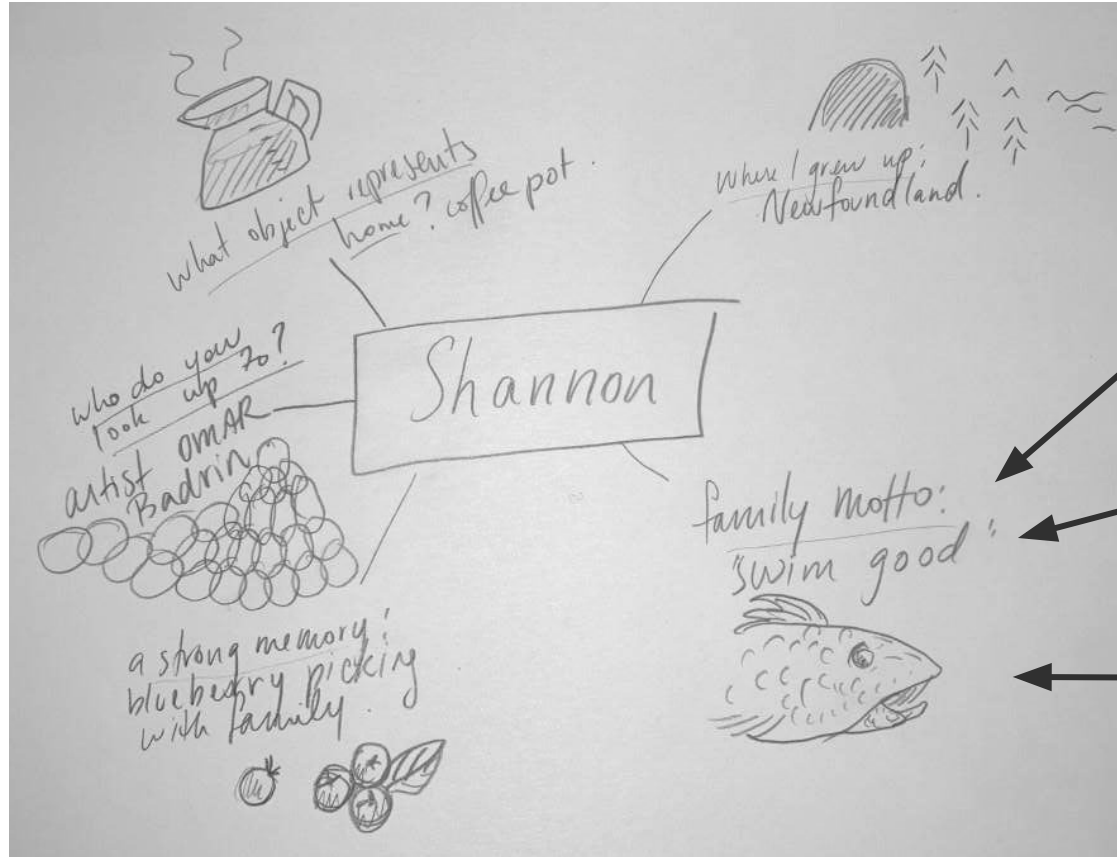 what object represents
home? coffee pot.
where I grew up:
Newfoundland.
Shannon
who do you
look up to?
artist OMAR
Badrin
family motto:
"swim good"
a strong memory:
blueberry picking
with family.